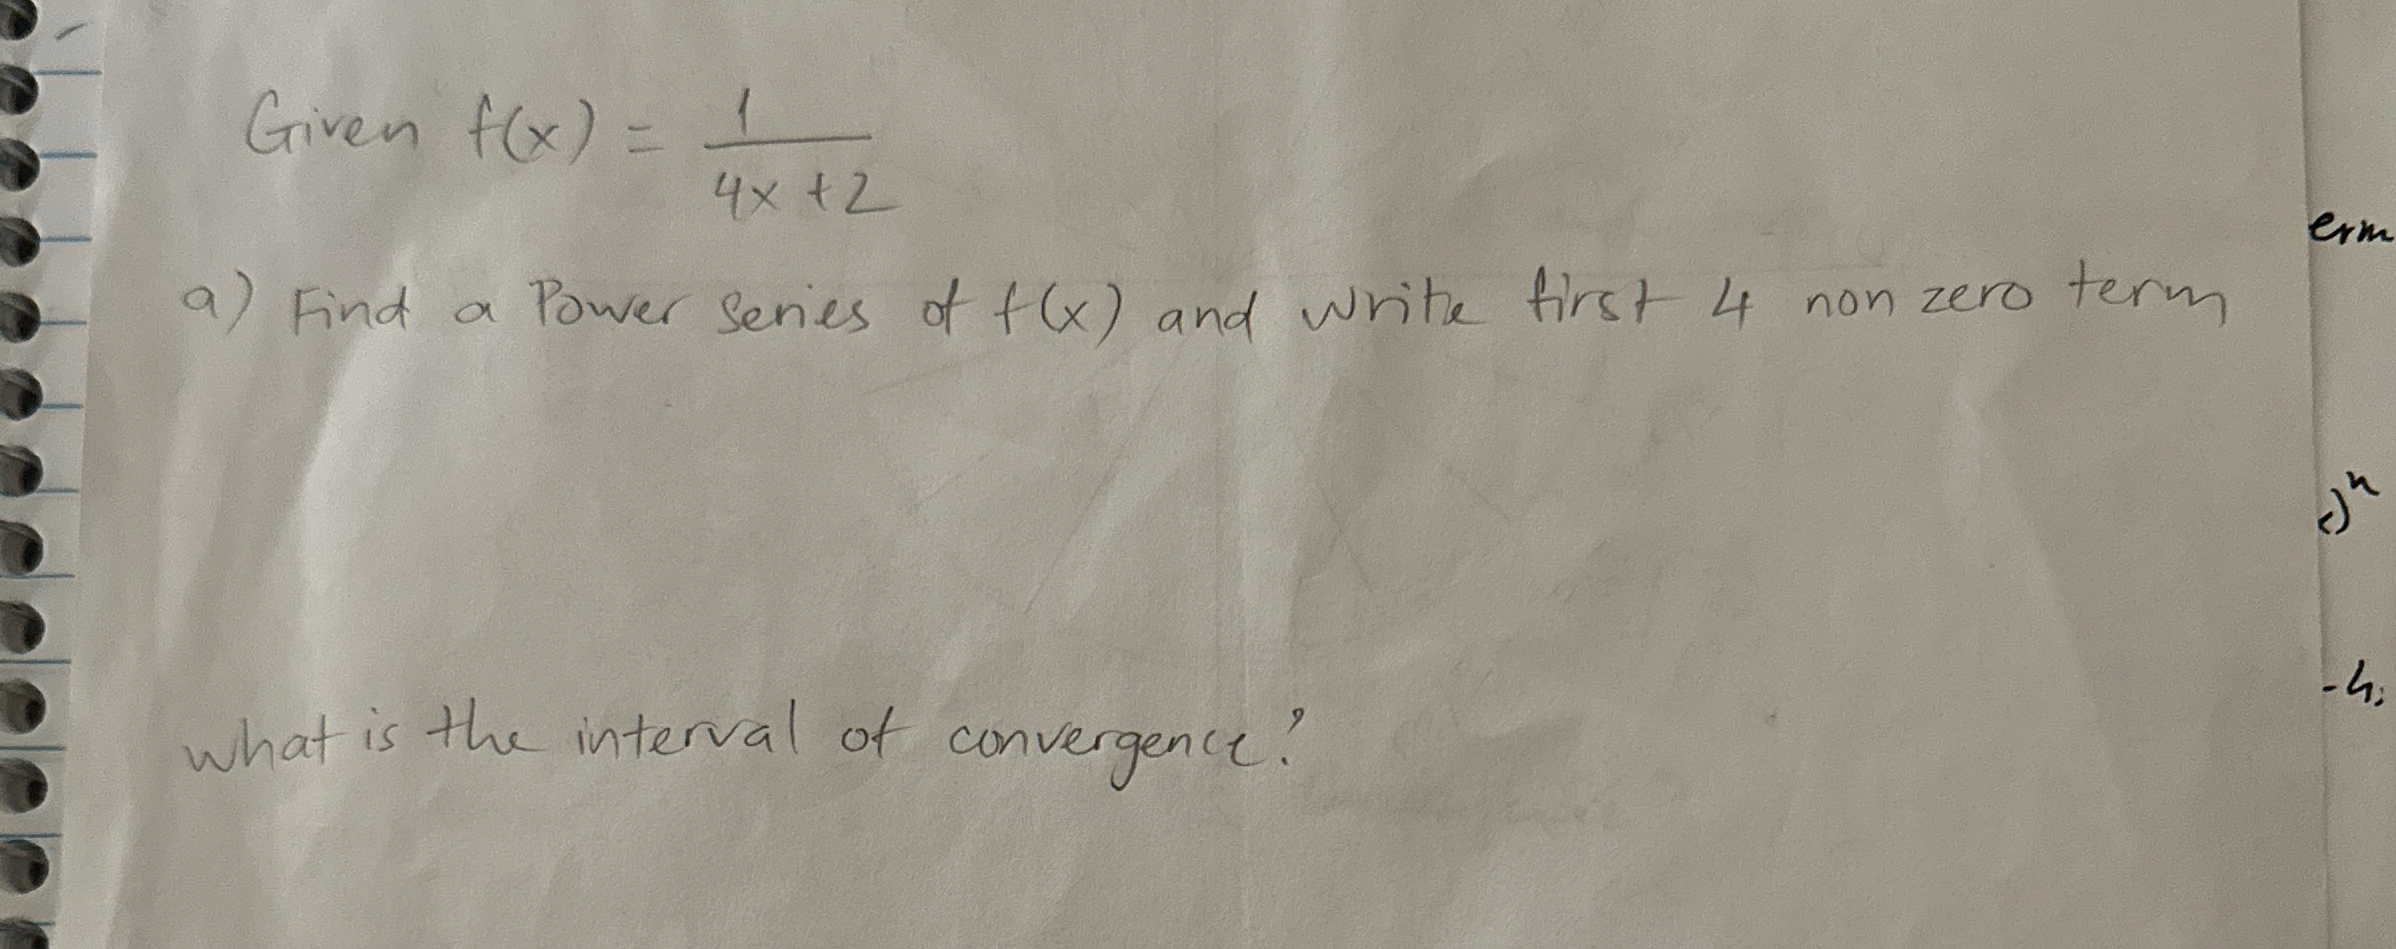 Given f(x) = 1/(4x+2)
a) Find a Power series of f(x) and write first 4 non zero term
what is the interval of convergence?
erm
)ⁿ
-4.